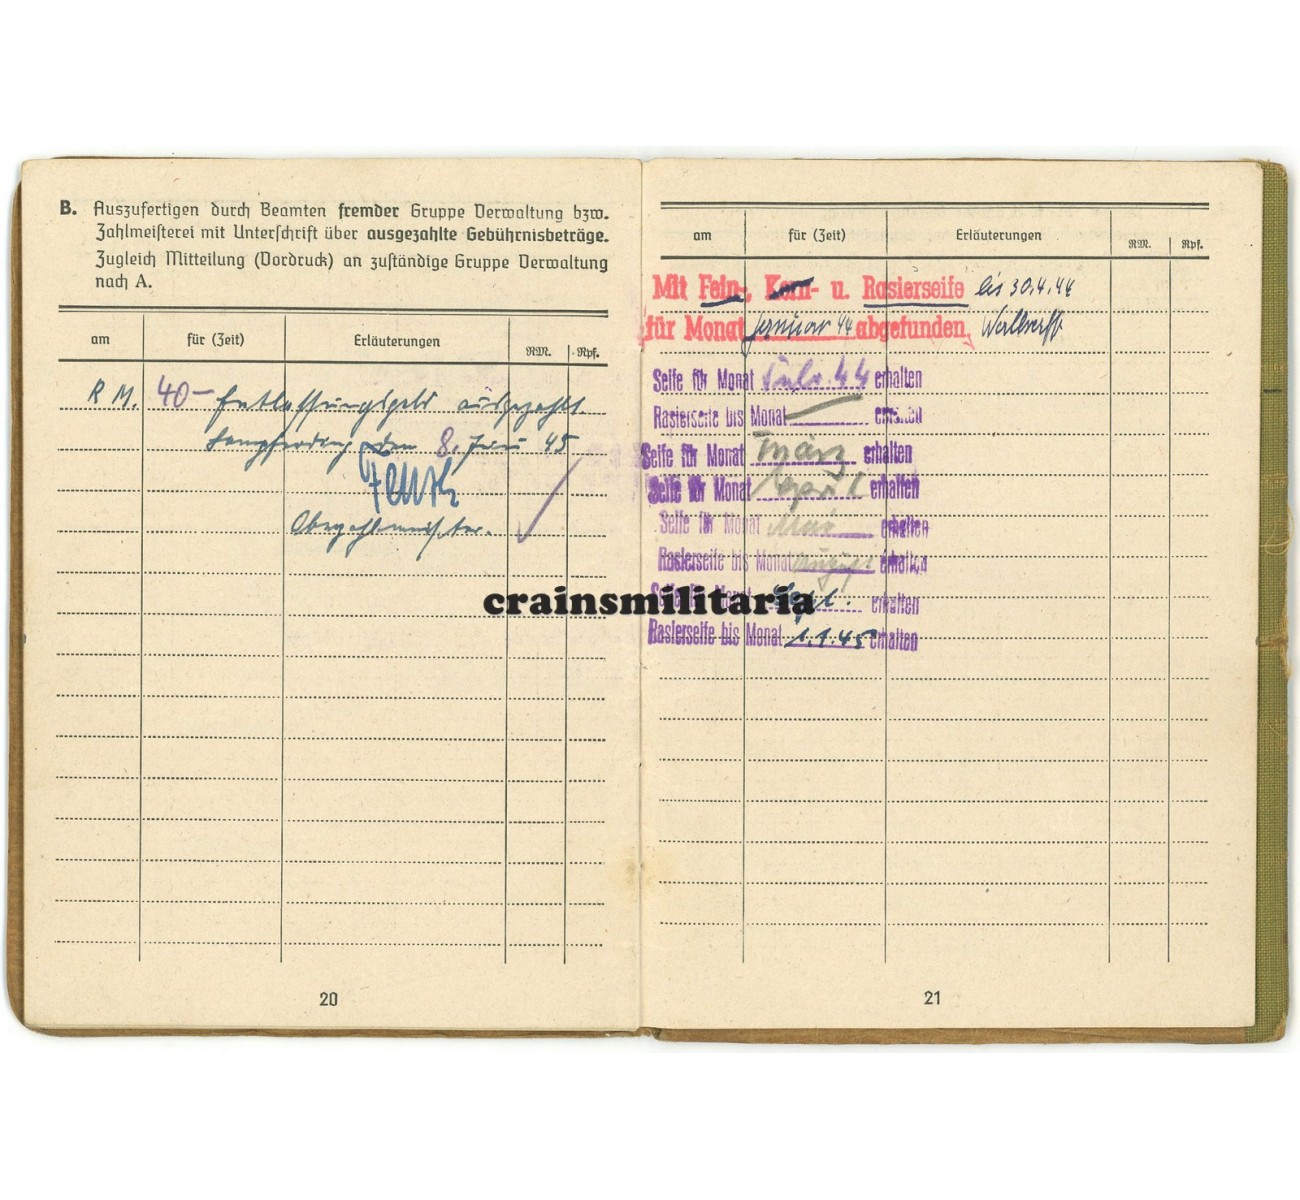 B. Auszufertigen durch Beamten fremder Gruppe Verwaltung bzw.
Zahlmeisterei mit Unterschrift über ausgezahlte Gebührnisbeträge.
Zugleich Mitteilung (Vordruck) an zuständige Gruppe Verwaltung
nach A.
am für (Zeit) Erläuterungen RM. Rpf.
RM. 40- Entlassungsgeld ausgezahlt
den 8. Juni 45
Oberzahlmeister.
20
am für (Zeit) Erläuterungen RM. Rpf.
Mit Fein-, Kern- u. Rasierseife bis 30.4.44
für Monat Januar 44 abgefunden,
Seife für Monat Febr. 44 erhalten
Rasierseife bis Monat erhalten
Seife für Monat März erhalten
Seife für Monat April erhalten
Seife für Monat Mai erhalten
Rasierseife bis Monat August erhalten
Seife für Monat Sept. erhalten
Rasierseife bis Monat 1.1.45 erhalten
21
crainsmilitaria